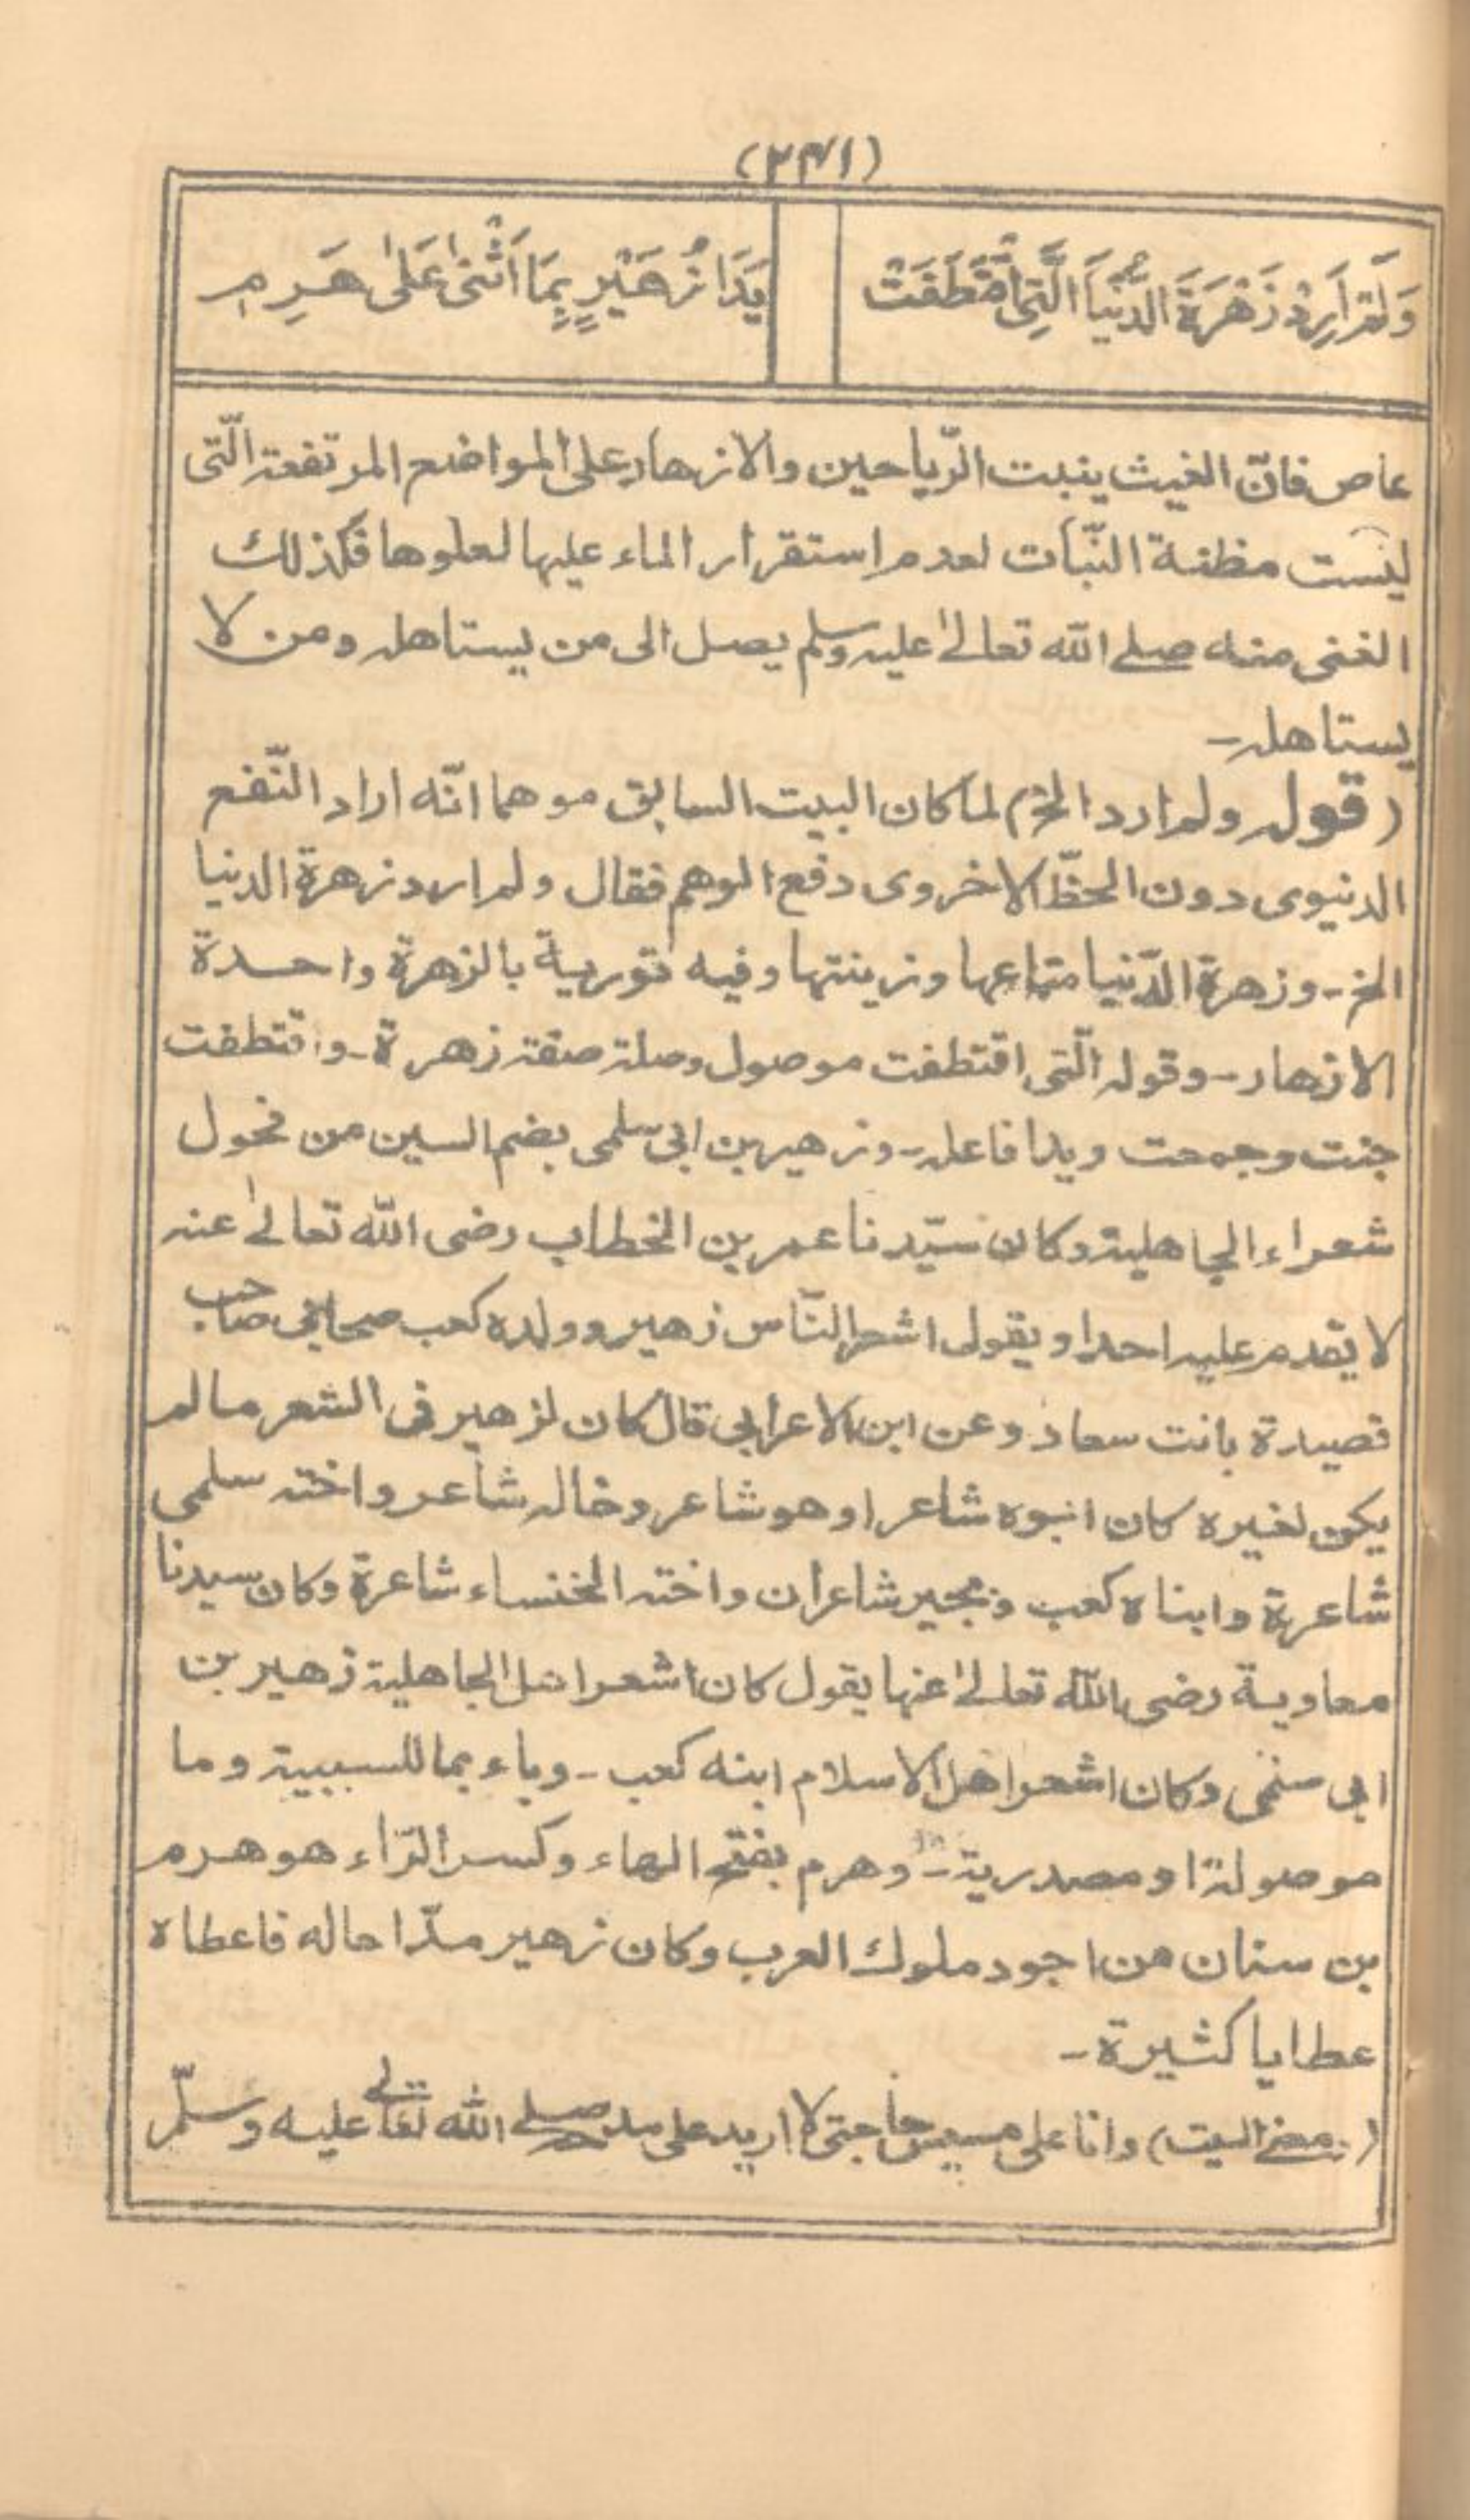 (٢٣١)
وَلَمْ أُرِدْ زَهْرَةَ الدُّنْيَا الَّتِي اقْتَطَفَتْ
يَدَا زُهَيْرٍ بِمَا اَثْنٰى عَلٰى هَرِمِ
عاص فانّ الغيث ينبت الرّياحين والازهار على المواضع المرتفعة الّتى
ليست مظنة النّبات لعدم استقرار الماء عليها لعلوها فكذلك
الغنى منه صلى الله تعالىٰ عليه وسلم يصل الى من يستاهله ومن لا
يستاهله۔
(قوله ولم ارد الخ) لما كان البيت السابق موهما انّه اراد النّفع
الدنيوى دون الحظّ الاخروى دفع الوهم فقال ولم ارد زهرة الدنيا
الخ۔ وزهرة الدّنيا متاعها وزينتها وفيه تورية بالزهرة واحدة
الازهار۔ وقوله الّتى اقتطفت موصول وصلة صفة زهرة۔ واقتطفت
جنت وجمعت ويدا فاعله۔ وزهير بن ابى سلمى بضم السين من فحول
شعراء الجاهلية وكان سيّدنا عمر بن الخطاب رضى الله تعالىٰ عنه
لا يقدم عليه احدا ويقول اشعر النّاس زهير وولده كعب صحابى صاحب
قصيدة بانت سعاد وعن ابن الاعرابى قال كان لزهير فى الشعر ما لم
يكن لغيره كان ابوه شاعرا وهو شاعر وخاله شاعر واخته سلمى
شاعرة وابناه كعب وبجير شاعران واخته الخنساء شاعرة وكان سيدنا
معاوية رضى الله تعالىٰ عنها يقول كان اشعر اهل الجاهلية زهير بن
ابى وكان اشعر اهل الاسلام ابنه كعب۔ وباء بما للسببية وما
موصولة او مصدرية۔ وهرم بفتح الهاء وكسر الرّاء هو هرم
بن سنان من اجود ملوك العرب وكان زهير مدّاحا له فاعطاه
عطايا كثيرة۔
(معنى البيت) وانا على مسيس حاجتى لا اريد على مدحه صلى الله تعالٰى عليه وسلّم